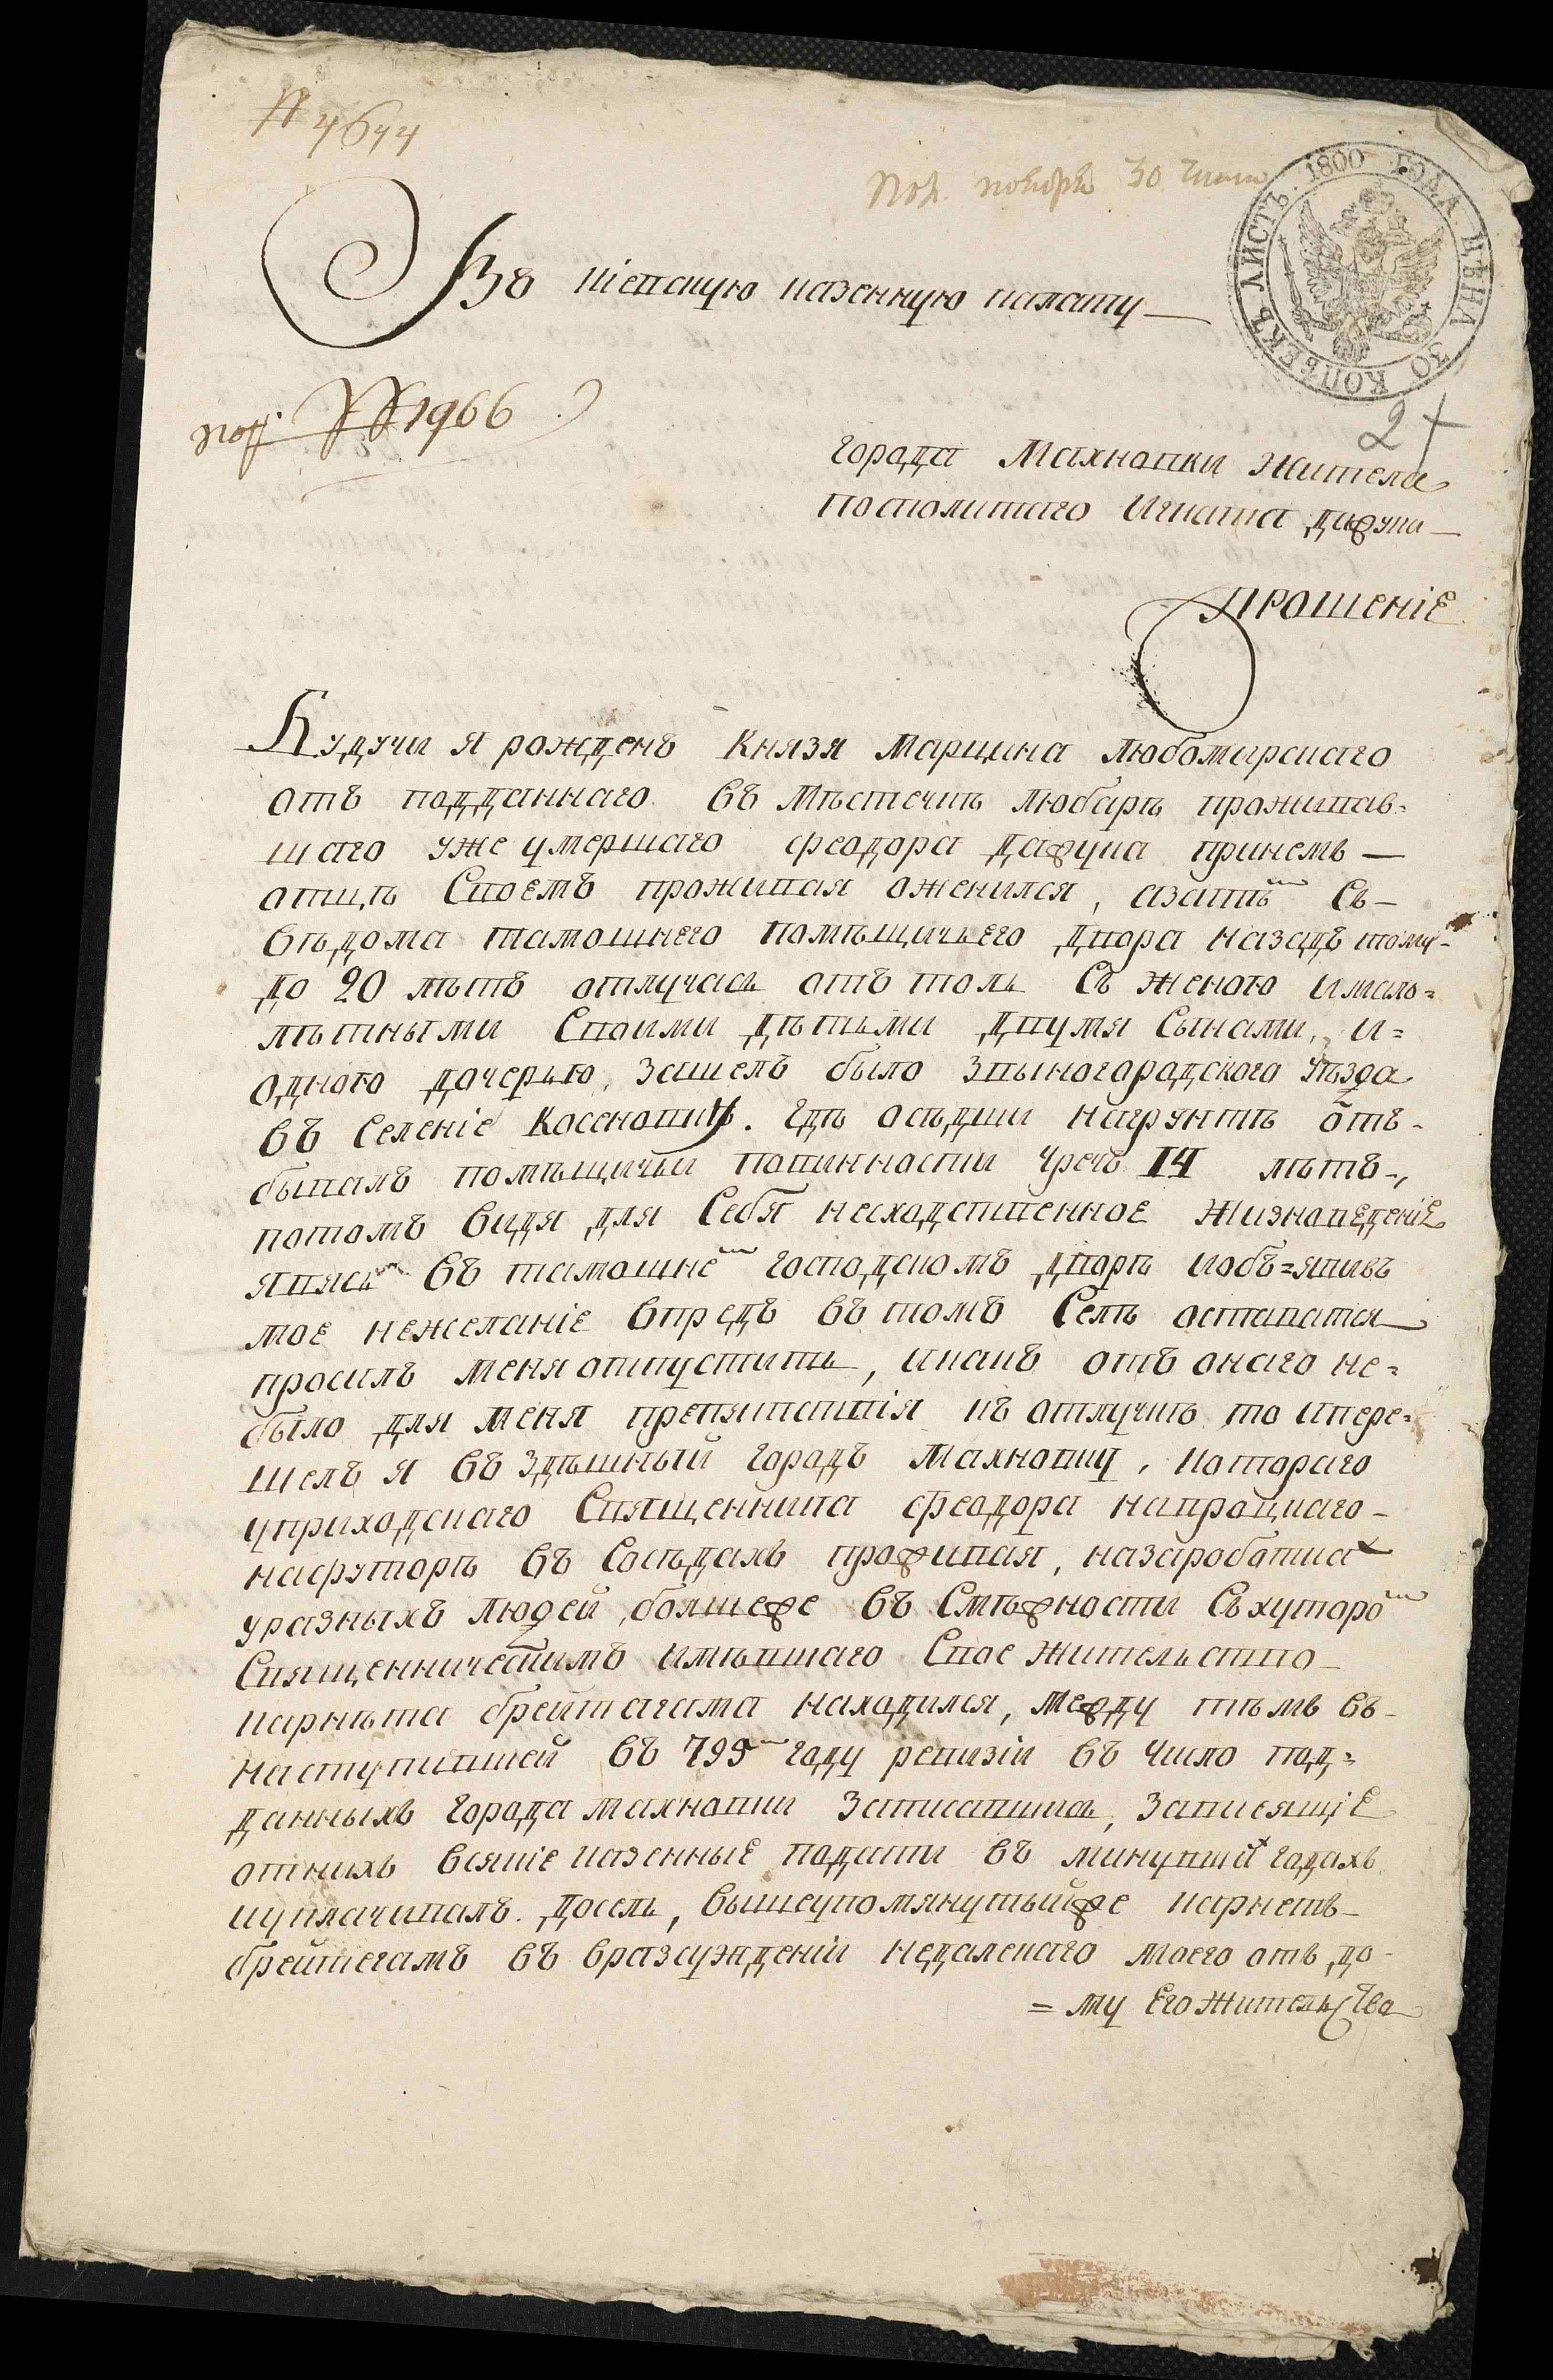 № 4644
Пол. ноября 30 числа
1800 ГОДА ЦѢНА 30 КОПѢЕКЪ ЛИСТЪ.
Въ кіевскую казенную палату —
№ 1966
2
города Махновки жителя
посполитаго Игната Дажука —
Прошеніе
Будучи я рожденъ Князя Марцина Любомирскаго
отъ подданнаго въ мѣстечкѣ Любарѣ проживав-
шаго уже умершаго Феодора Дажука принемъ —
отцѣ Своемъ проживая оженился, азатѣм Съ-
вѣдома тамошнего помѣщичьего двора назадъ тому-
до 20 лѣтъ отлучась отъ толь Съ женою имало=
лѣтными Своими дѣтьми двумя Сынами, и=
одною дочерью, зашелъ было Звыногорадского уѣзда
въ Селеніе Коссеновку. гдѣ осѣдши нагрунтѣ отъ-
бывалъ помѣщичьи повинности чрезъ 14 лѣтъ-,
потомъ видя для Себя несходственное жизноведеніе
явясь въ тамошнем господскомъ дворѣ иобъ=явивъ
мое нежеланіе впредъ въ томъ Селѣ оставатся
просилъ меня отпустить, икакъ отъ онаго не=
было для меня препятствія къ отлучкѣ то ипере=
шелъ я въ здѣшный городъ Махновку, котораго
уприходскаго Священника Феодора Напроцкаго-
нафуторѣ въ Сосѣдахъ проживая,назаработках
уразныхъ людей, болшеже въ Смѣжности Съхуторо͞м
Священническимъ имѣвшаго Свое жительство-
карнѣта брейтагама находился, между тѣмъ въ-
наступившей въ 795м году ревизіи въ число под=
данныхъ города Махновки записавшись, зависящіе
отнихъ всякіе казенные подати въ минувших годахъ
иуплачивалъ. Досель, вышеупомянутыйже карнетъ-
брейтегамъ въ вразсужденіи недалекаго моего отъ до-
= му Его жительства